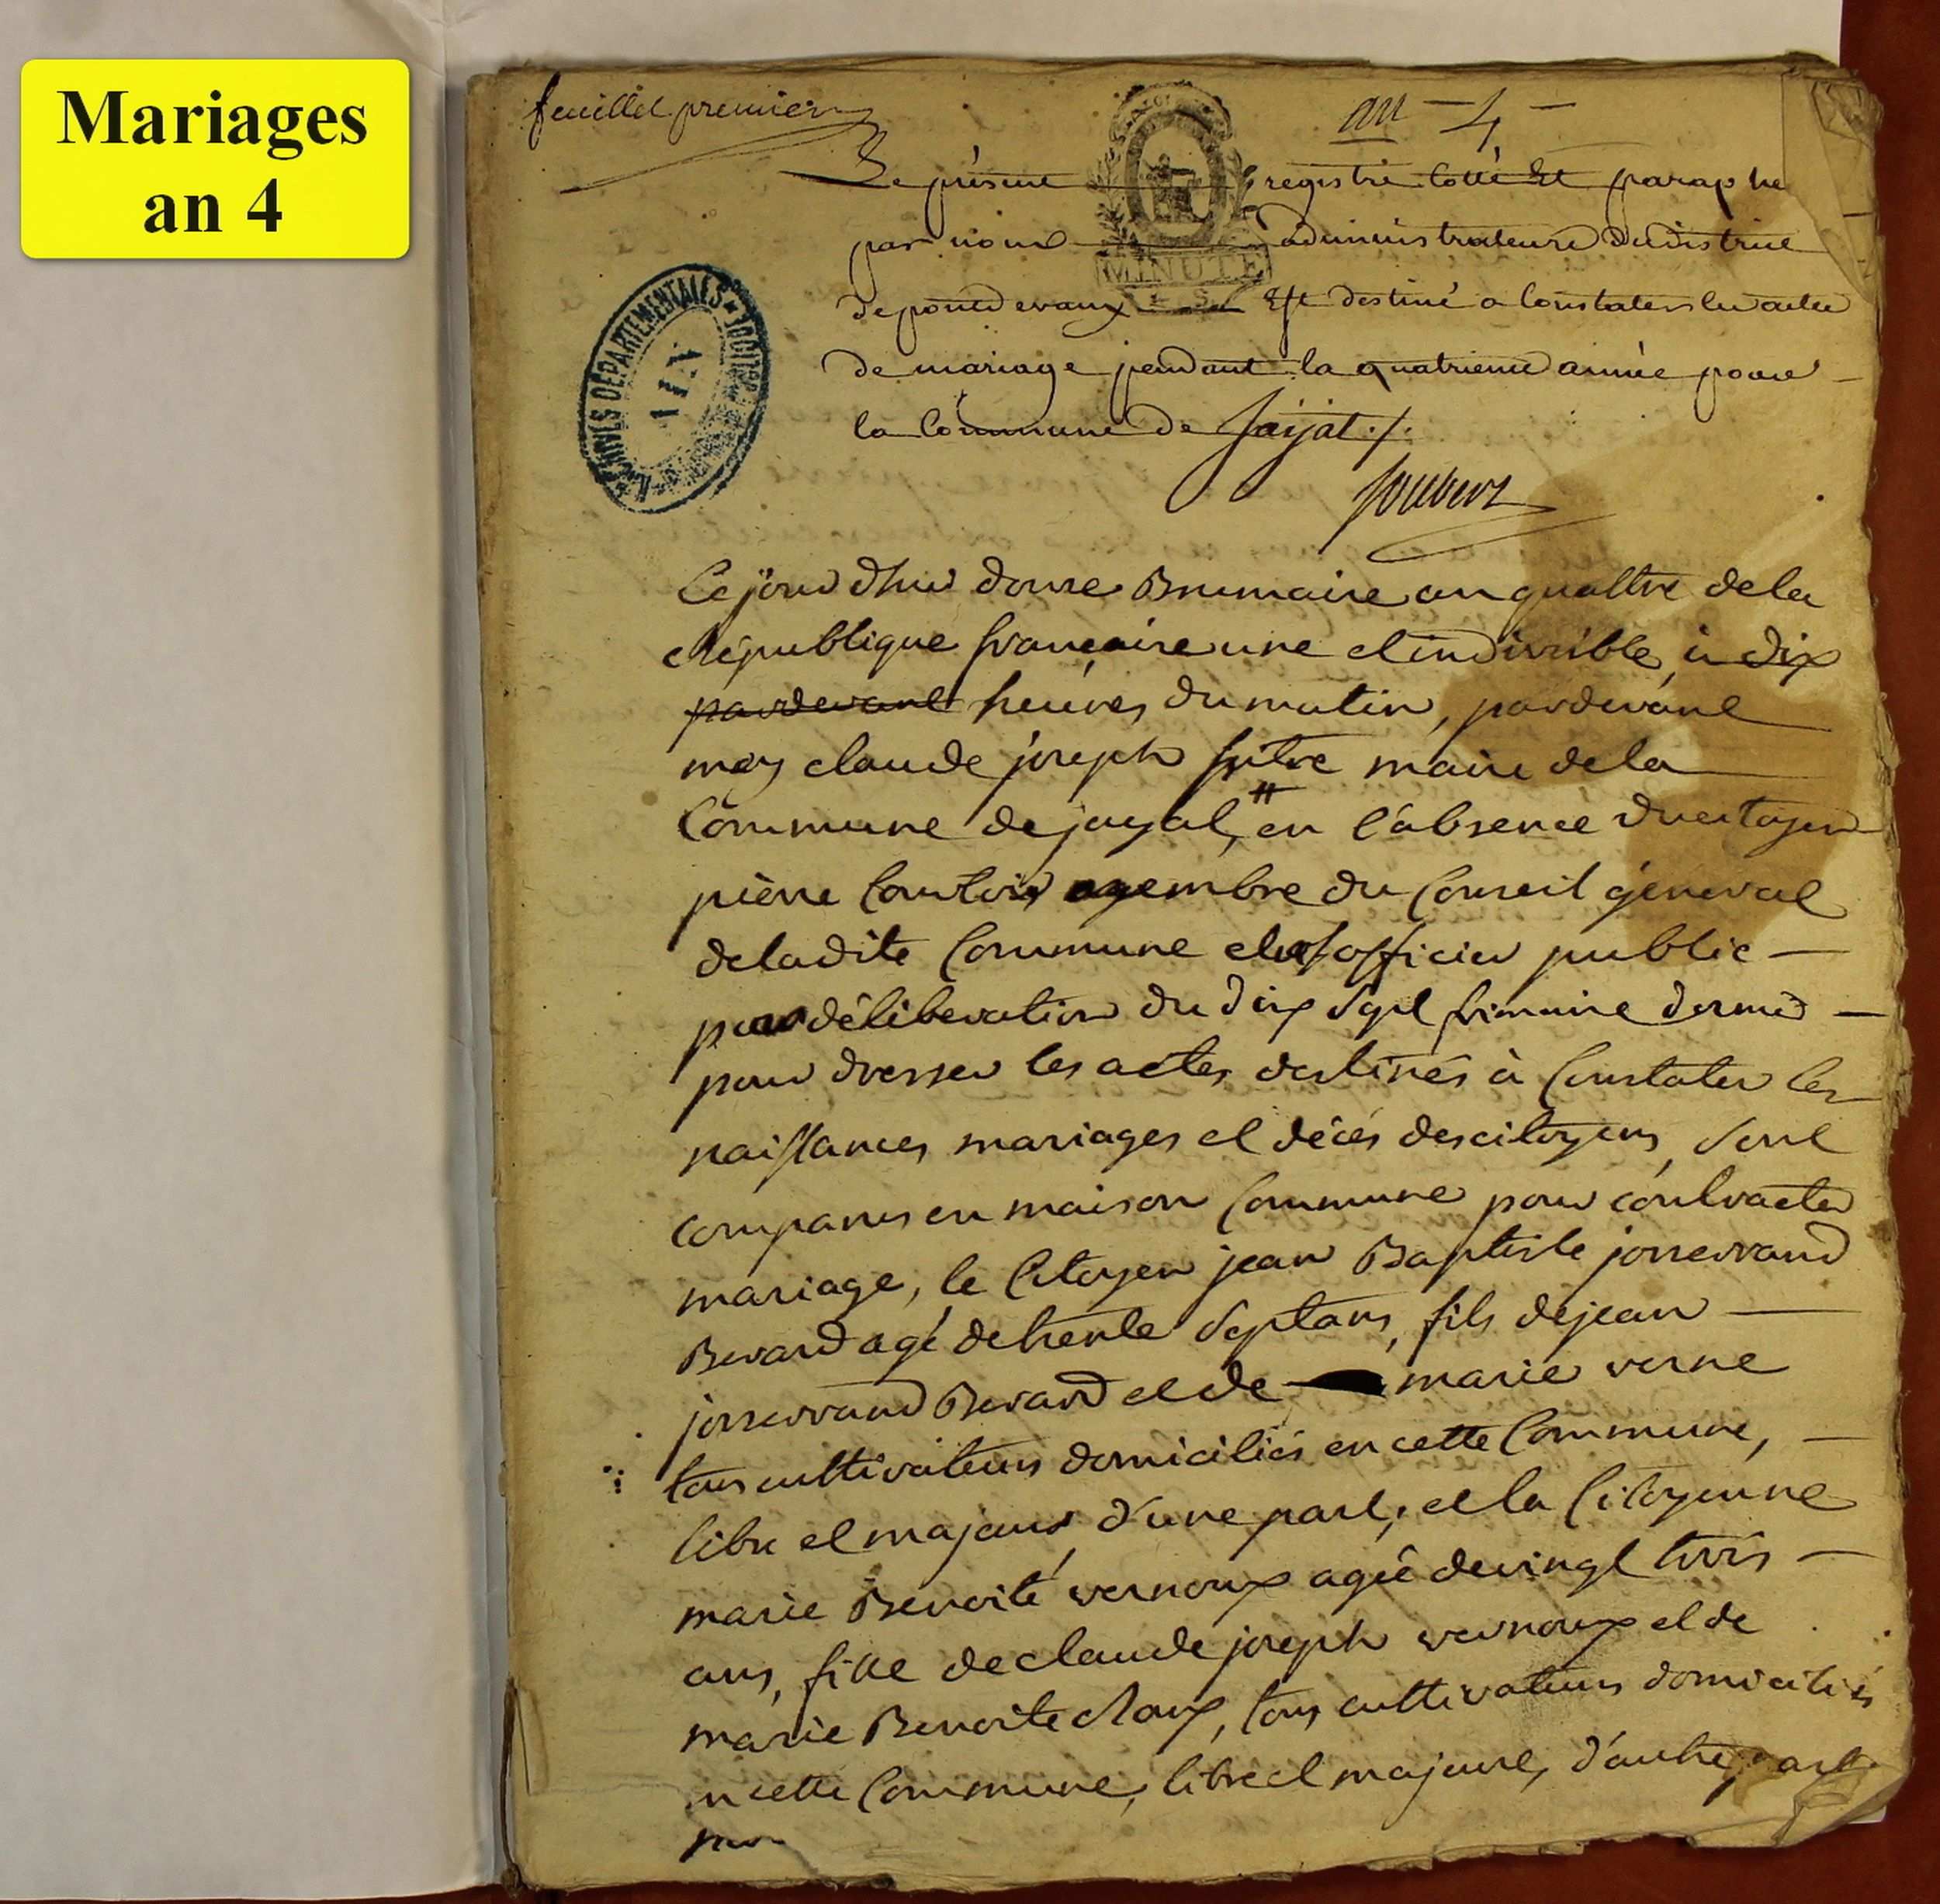 Mariages
an 4
feuillet premier
an - 4 -
Le présent registre cotté Et paraphe
par nous administrateurs du district
de pontdevaux Est destiné a Constater les actes
de mariage pendant la quatrieme année pour
la Commune de Jaÿat ./.
MINUTE
ARCHIVES DÉPARTEMENTALES
AIN
Joubert
Cejourdhui douze Brumaire an quattre dela
République francaise une et indivisible, à dix
pardevant heures du matin, pardevant
moy claude joseph pitre maire dela
Commune de jayat, # en l'absence du citoyen
pière Comtois membre du Conseil géneral
deladite Commune elu officier public
par déliberation du dix Sept frimaire dernier
pour dresser les actes destinés à Constater les
naissances mariages et décés descitoyens, Sont
comparus en maison Commune pour contracter
mariage, le Citoyen jean Baptiste josserrand
Berard agé detrente Septans, fils dejean
josserrand Berard et de marie verne
tous cultivateurs domiciliés en cette Commune,
libre et majeur, d'une part, et la Citoyenne
marie Benoite vernoux agée devingt trois
ans, fille declaude joseph vernoux et de
marie Benoite Roux, tous cultivateurs domiciliés
en cette Commune, libre et majeure, d'autre part